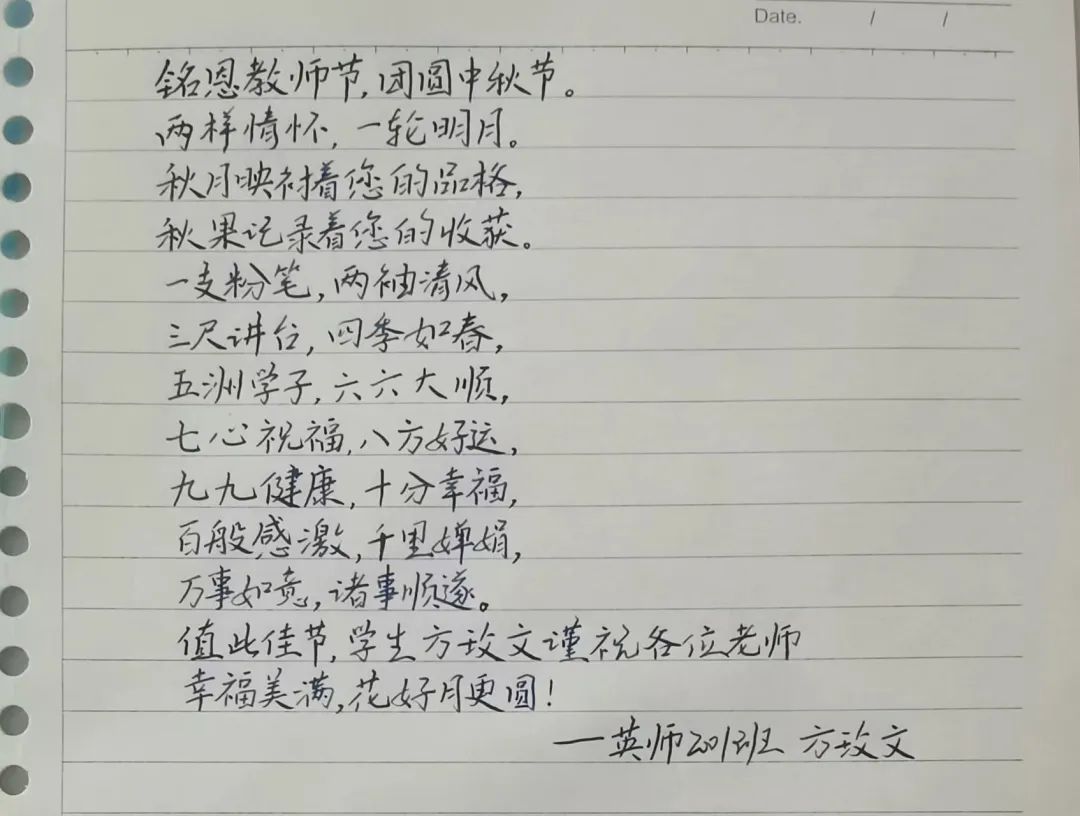 Date. / /
铭恩教师节,团圆中秋节。
两样情怀,一轮明月。
秋月映衬着您的品格,
秋果记录着您的收获。
一支粉笔,两袖清风,
三尺讲台,四季如春,
五洲学子,六六大顺,
七心祝福,八方好运,
九九健康,十分幸福,
百般感激,千里婵娟,
万事如意,诸事顺遂。
值此佳节,学生方玫文谨祝各位老师
幸福美满,花好月更圆!
——英师2001班 方玫文